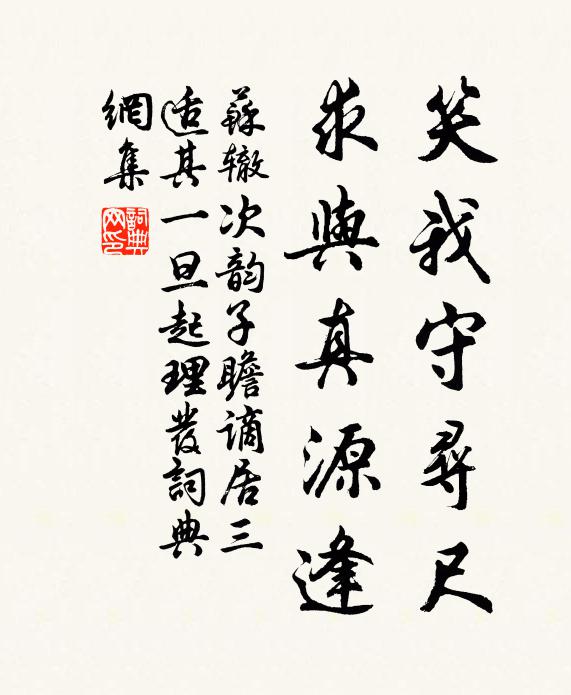 笑我守尋尺
求與真源逢
蘇辙次韵子瞻谪居三
适其一旦起理髮詞典
網集
詞典
网印